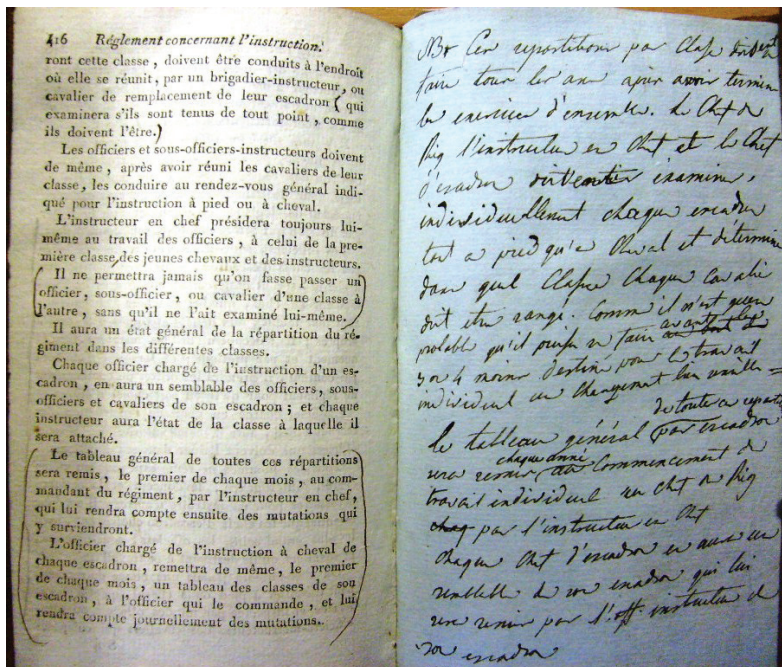 416 Réglement concernant l'instruction.
ront cette classe, doivent être conduits à l'endroit
où elle se réunit, par un brigadier-instructeur, ou
cavalier de remplacement de leur escadron (qui
examinera s'ils sont tenus de tout point, comme
ils doivent l'être.)
Les officiers et sous-officiers-instructeurs doivent
de même, après avoir réuni les cavaliers de leur
classe, les conduire au rendez-vous général indi-
qué pour l'instruction à pied ou à cheval.
L'instructeur en chef présidera toujours lui-
même au travail des officiers, à celui de la pre-
mière classe, des jeunes chevaux et des instructeurs.
Il ne permettra jamais qu'on fasse passer un
officier, sous-officier, ou cavalier d'une classe à
l'autre, sans qu'il ne l'ait examiné lui-même.
Il aura un état général de la répartition du ré-
giment dans les différentes classes.
Chaque officier chargé de l'instruction d'un es-
cadron, en aura un semblable des officiers, sous-
officiers et cavaliers de son escadron; et chaque
instructeur aura l'état de la classe à laquelle il
sera attaché.
Le tableau général de toutes ces répartitions
sera remis, le premier de chaque mois, au com-
mandant du régiment, par l'instructeur en chef,
qui lui rendra compte ensuite des mutations qui
y surviendront.
L'officier chargé de l'instruction à cheval de
chaque escadron, remettra de même, le premier
de chaque mois, un tableau des classes de son
escadron, à l'officier qui le commande, et lui
rendra compte journellement des mutations.
repartitions par Classe doivent
faire tour les ans après avoir terminé
les exercices d'ensemble. Le Chef de
Rég l'instructeur en Chef et le Chef
d'escadron doivent examiner
individuellement chaque escadron
tant a pied qu'a Cheval et déterminer
dans quel Classe Chaque Cavalier
doit etre rangé. Comme il n'est guere
probable qu'il puisse en faire avant
3 ou 4 mois destiné pour le travail
individuel un changement
de toute ces repartit
le tableau général par escadron
sera remis chaque année au Commencement du
travail individuel au Chef de Rég
par l'instructeur en Chef
Chaque Chef d'escadron en aura un
semblable de son escadron qui lui
sera remis par l'off instructeur de
son escadron